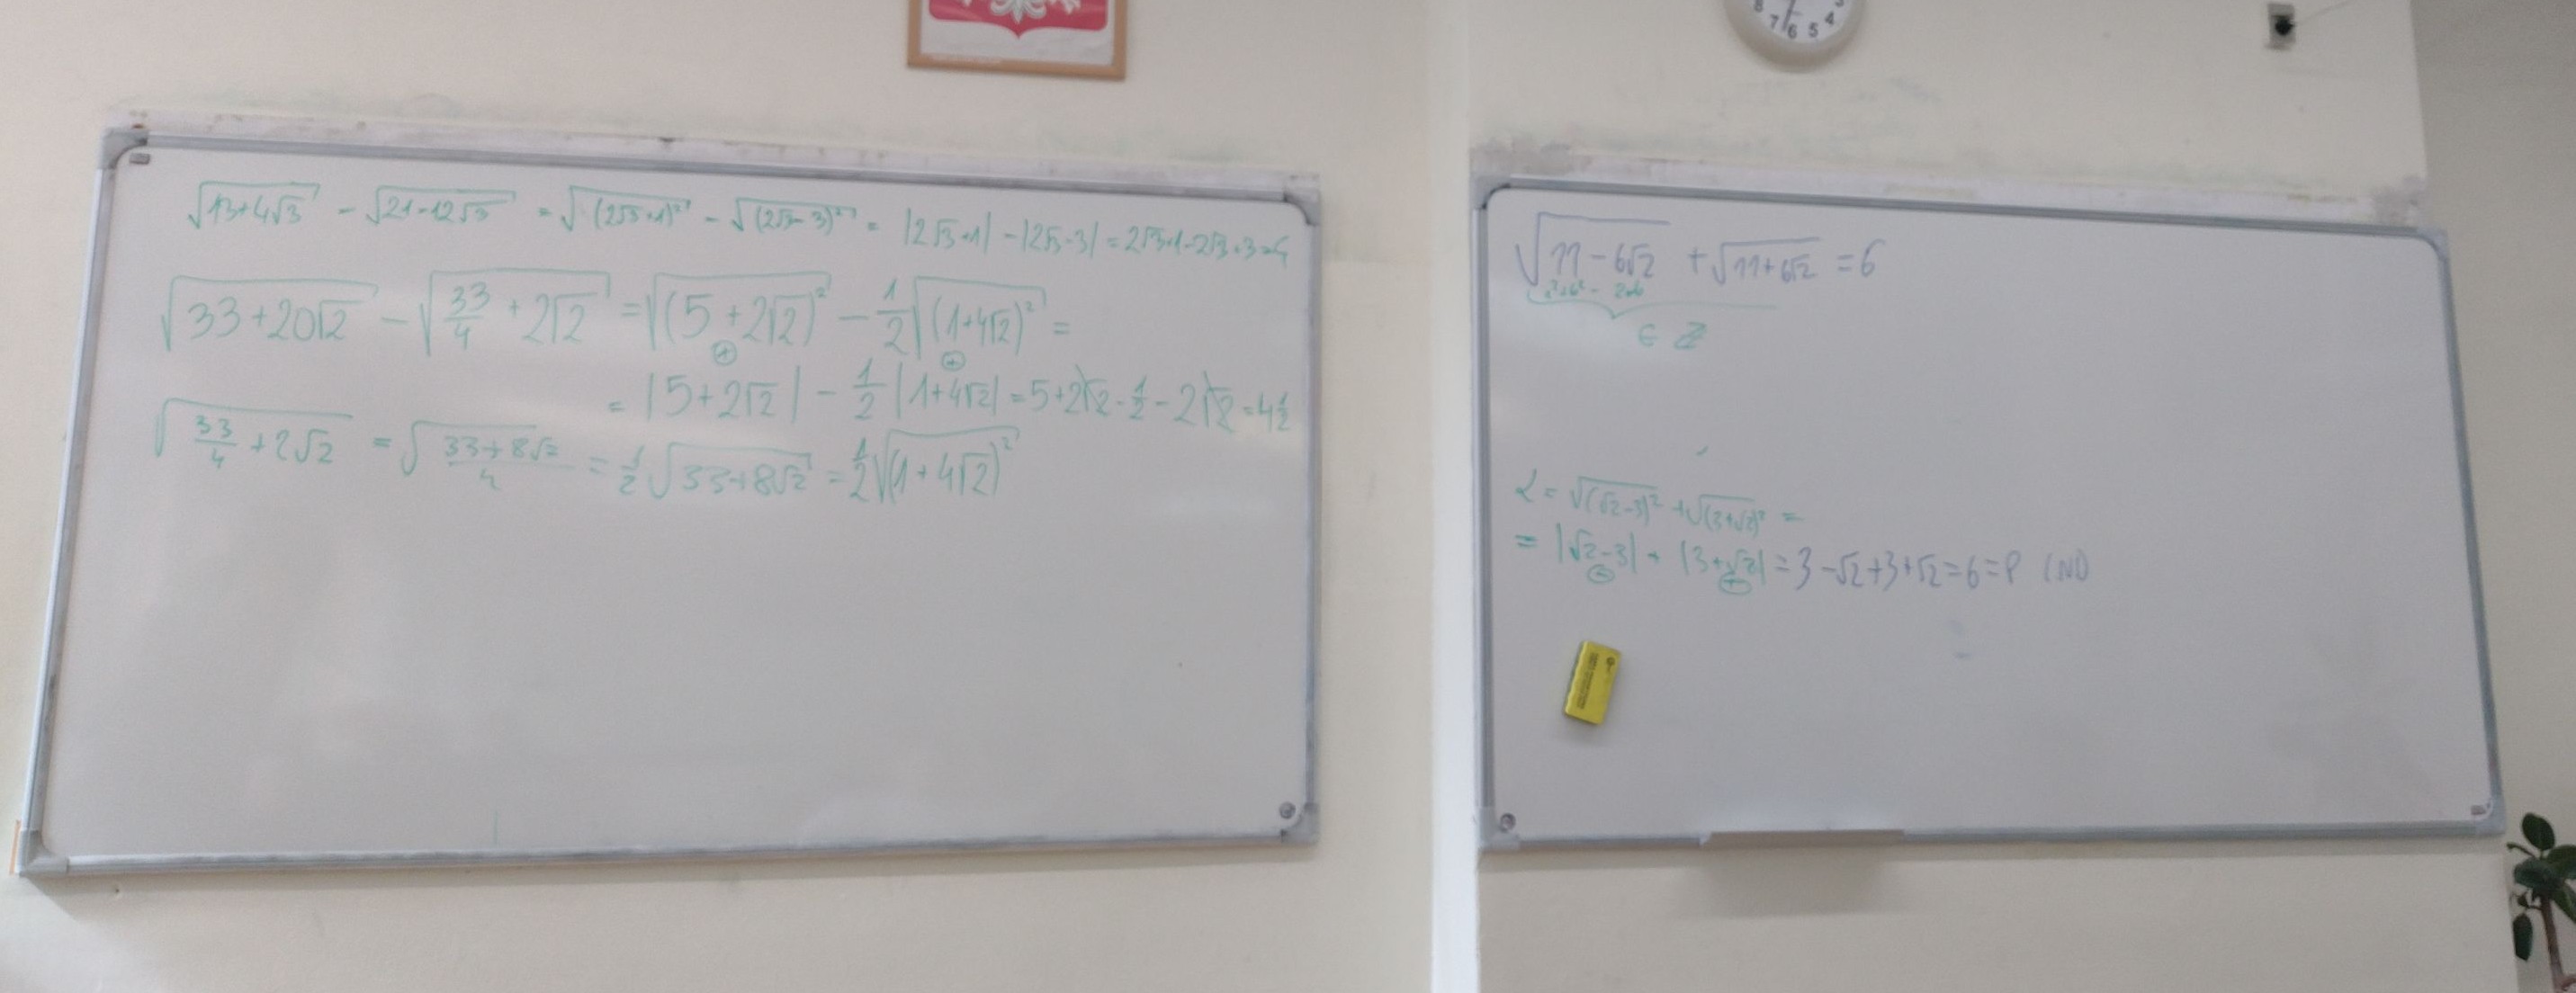 √(13+4√3) - √(21-12√3) = √((2√3+1)²) - √((2√3-3)²) = |2√3+1| - |2√3-3| = 2√3+1-2√3+3=4
√(33+20√2) - √(33/4 + 2√2) = √((5+2√2)²) - 1/2 √((1+4√2)²) =
⊕ ⊕
= |5+2√2| - 1/2 |1+4√2| = 5+2√2 - 1/2 - 2√2 = 4 1/2
√(33/4 + 2√2) = √((33+8√2)/4) = 1/2 √(33+8√2) = 1/2 √((1+4√2)²)
√(11-6√2) + √(11+6√2) = 6
a²+b² - 2ab
∈ ℤ
L = √((√2-3)²) + √((3+√2)²) =
= |√2-3| + |3+√2| = 3-√2+3+√2=6=P
⊖ ⊕
8 7 6 5 4 3